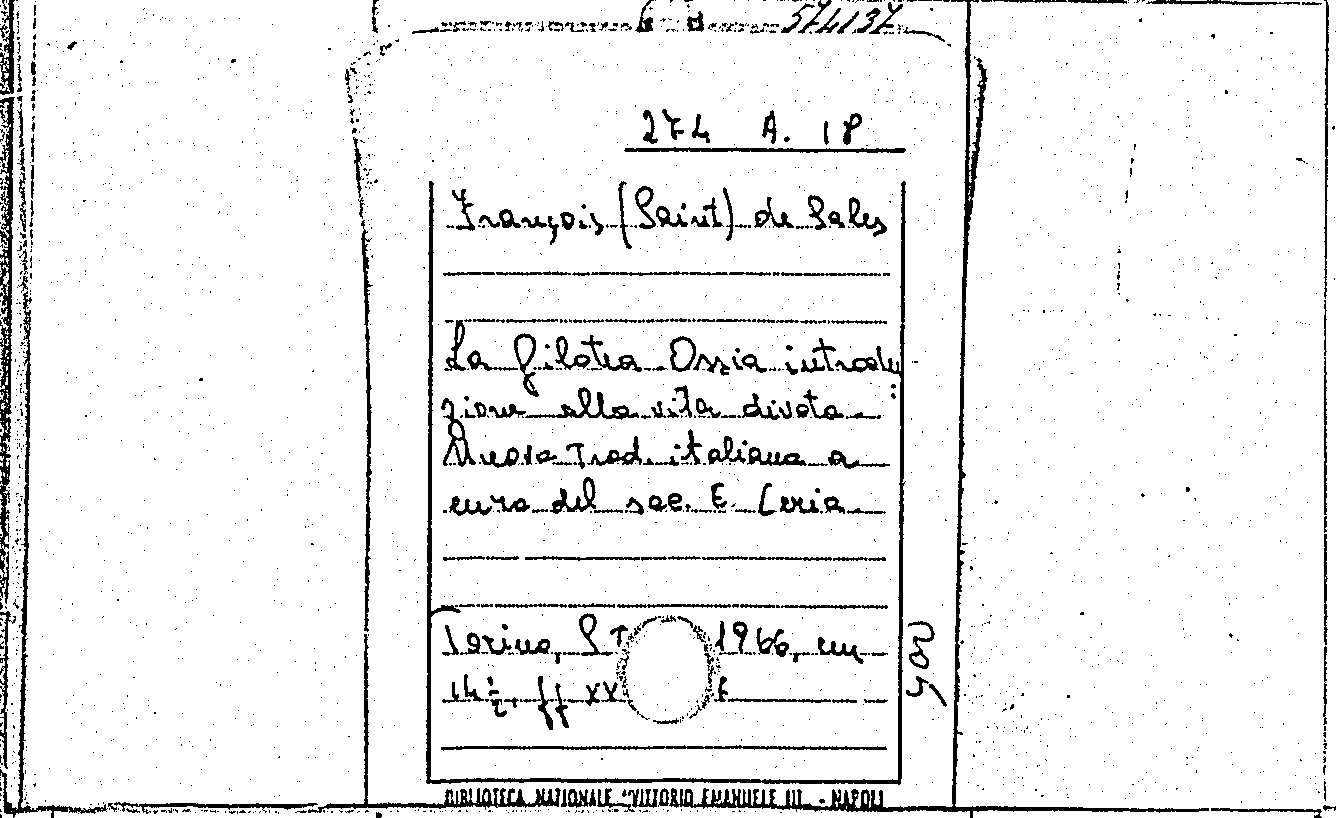 574137
274 A. 18
François (Saint) de Sales
La Filotea Ossia introdu
zione alla vita divota.
Nuova Trad. italiana a
cura del sac. E. Ceria.
Torino, S T 1966, cm
14 ½, ff XV
BIBLIOTECA NAZIONALE "VITTORIO EMANUELE III" - NAPOLI